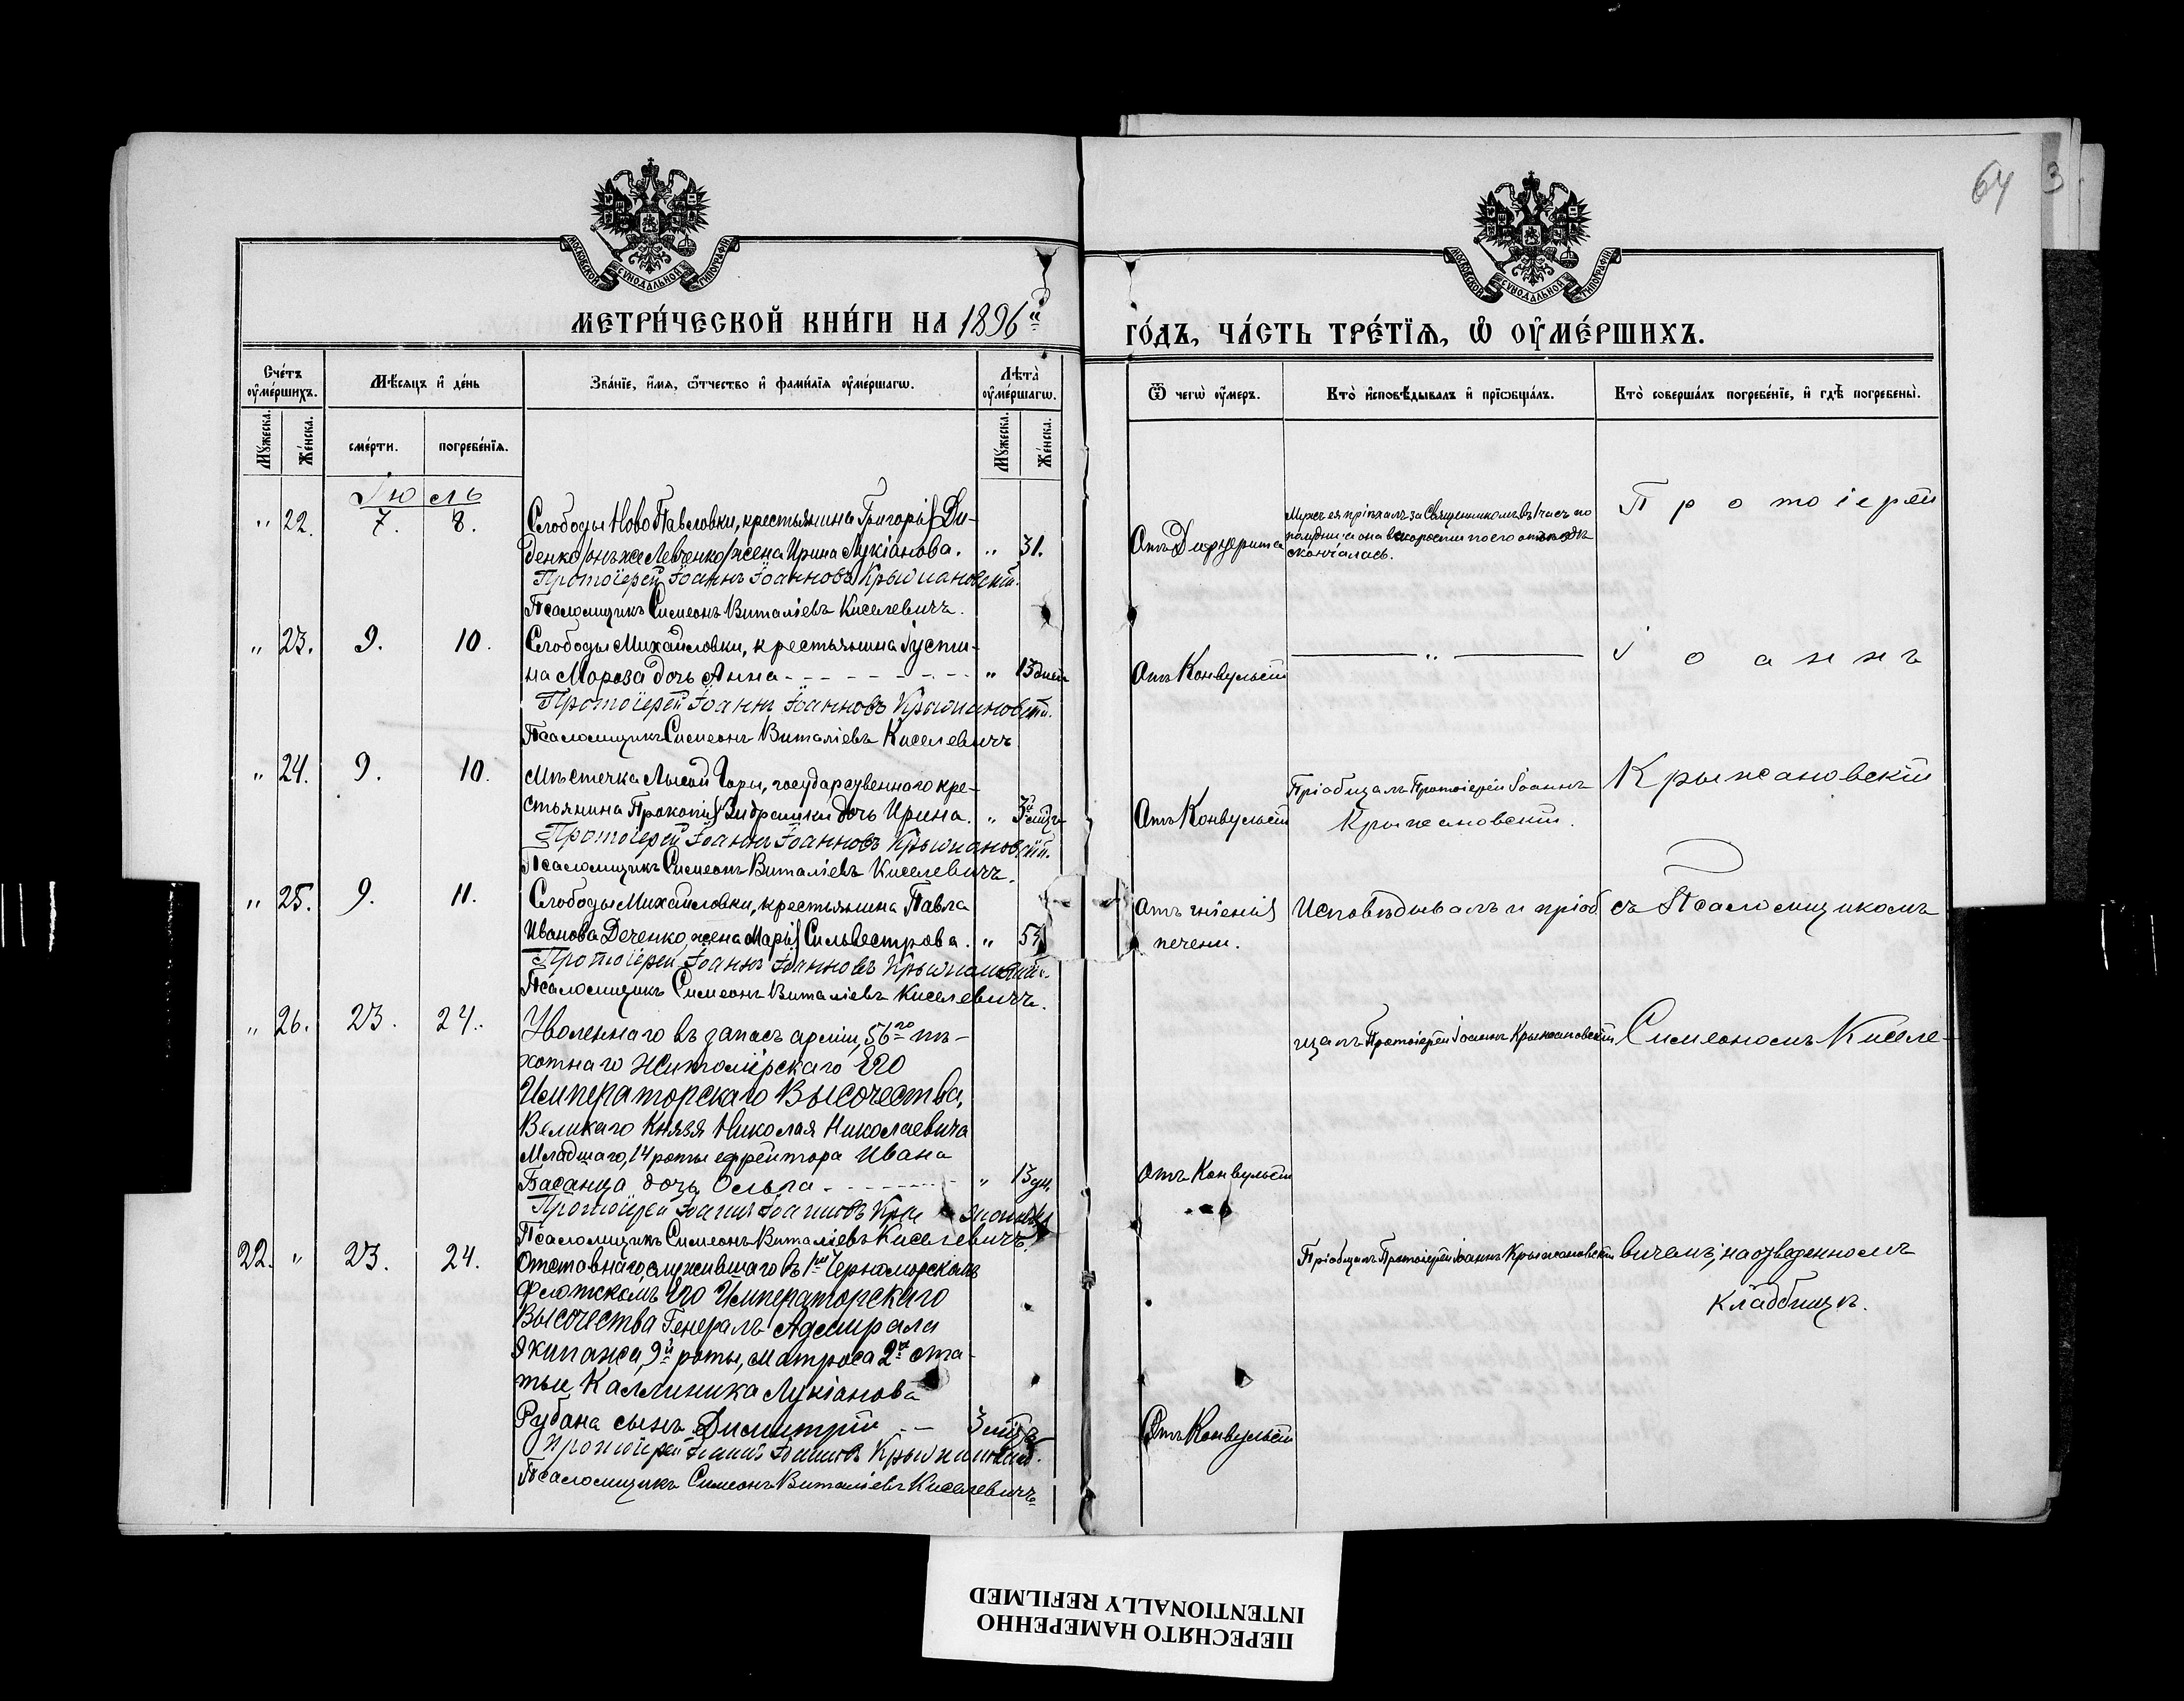 64
3
МОСКОВСКОЙ СѴНОДАЛЬНОЙ ТИПОГРАФІИ
МОСКОВСКОЙ СѴНОДАЛЬНОЙ ТИПОГРАФІИ
МЕТРИ́ЧЕСКОЙ КНИ́ГИ НА 1896й
ГО́ДЪ, ЧА́СТЬ ТРЕ́ТЇѦ, Ѡ҆ ОУ҆МЕ́РШИХЪ.
Сче́тъ оу҆ме́ршихъ.
Мꙋ́жеска.
Же́нска.
Мѣ́сяцъ и҆ де́нь
сме́рти.
погребе́нїѧ.
Зва́нїе, и҆́мѧ, ѻ҆́тчество и҆ фами́лїѧ оу҆ме́ршагѡ.
Лѣ́та оу҆ме́ршагѡ.
Мꙋ́жеска.
Же́нска.
Ѿ чегѡ̀ оу҆́меръ.
Кто̀ и҆сповѣ́дывалъ и҆ прїѡбща́лъ.
Кто̀ соверша́лъ погребе́нїе, и҆ гдѣ̀ погребены̀.
Іюль
" 22. 7. 8.
Слободы Ново Павловки, крестьянина Григорія Ди-
денко онъ же Левченко жена Ирина Лукіанова. " 31.
Протоіерей Іоаннъ Іоанновъ Крыжановскій.
Псаломщикъ Симеонъ Виталіевъ Киселевичъ.
Отъ Дифтерита
Мужъ ея пріѣхалъ за Священникомъ въ 1 часъ по
полудни и она вскорости по его отъѣздѣ
скончалась.
Протоіерей
" 23. 9. 10.
Слободы Михайловки, крестьянина Іусти-
на Мороза дочь Анна " 13 дней
Протоіерей Іоаннъ Іоанновъ Крыжановскій.
Псаломщикъ Симеонъ Виталіевъ Киселевичъ
Отъ Конвульсій
"
Іоаннъ
" 24. 9. 10.
Мѣстечка Лысой Горы, государственнаго кре-
стьянина Прокопія дочь Ирина. "
Протоіерей Іоаннъ Іоанновъ Крыжановскій.
Псаломщикъ Симеонъ Виталіевъ Киселевичъ.
Отъ Конвульсій
Пріобщалъ Протоіерей Іоаннъ
Крыжановскій.
Крыжановскій
" 25. 9. 11.
Слободы Михайловки, крестьянина Павла
Иванова Деченко, жена Марія Сильвестрова. "
Протоіерей Іоаннъ Іоанновъ Крыжановскій.
Псаломщикъ Симеонъ Виталіевъ Киселевичъ.
Отъ гніенія
печени.
Исповѣдывалъ и пріоб
щалъ Протоіерей Іоаннъ Крыжановскій
съ Псаломщикомъ
" 26. 23. 24.
Уволеннаго въ запасъ арміи, 56го пѣ-
хотнаго Житомірскаго Его
Императорскаго Высочества,
Великаго Князя Николая Николаевича
Младшаго, 14 роты ефрейтора Ивана
Басанца дочь Ольга " 13 дн.
Протоіерей Іоаннъ Іоанновъ Крыжановскій
Псаломщикъ Симеонъ Виталіевъ Киселевичъ.
Отъ Конвульсій
Симеономъ Киселе-
22. " 23. 24.
Отставнаго, служившаго въ 1мъ Черноморскомъ
Флотскомъ Его Императорскаго
Высочества Генералъ Адмирала
Экипажа, 9й роты, матроса 2й ста-
тьи Каллиника Лукіанова
Рубана сынъ Димитрій
Протоіерей Іоаннъ Іоанновъ Крыжановскій.
Псаломщикъ Симеонъ Виталіевъ Киселевичъ
Отъ Конвульсій
Пріобщалъ Протоіерей Іоаннъ Крыжановскій
вичемъ, на отведенномъ
кладбищѣ.
ПЕРЕСНЯТО НАМЕРЕННО
INTENTIONALLY REFILMED